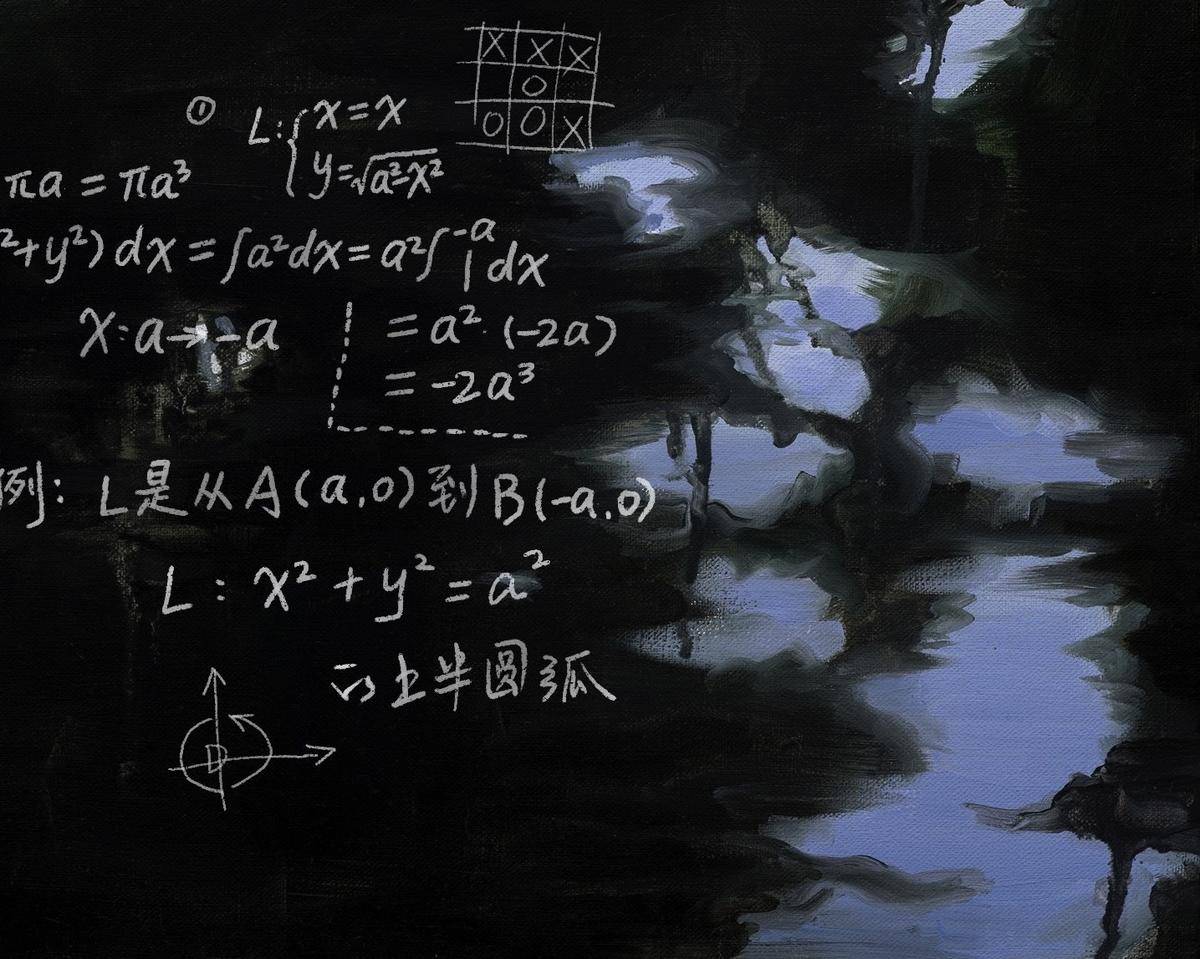 X X X
O
O O X
① L:{x=x
y=√a²-x²
πa = πa³
²+y²)dx=∫a²dx=a²∫⁻ᵃ 1 dx
x:a→-a
=a²·(-2a)
=-2a³
例: L是从A(a,0)到B(-a,0)
L : x²+y²=a²
的上半圆弧
D